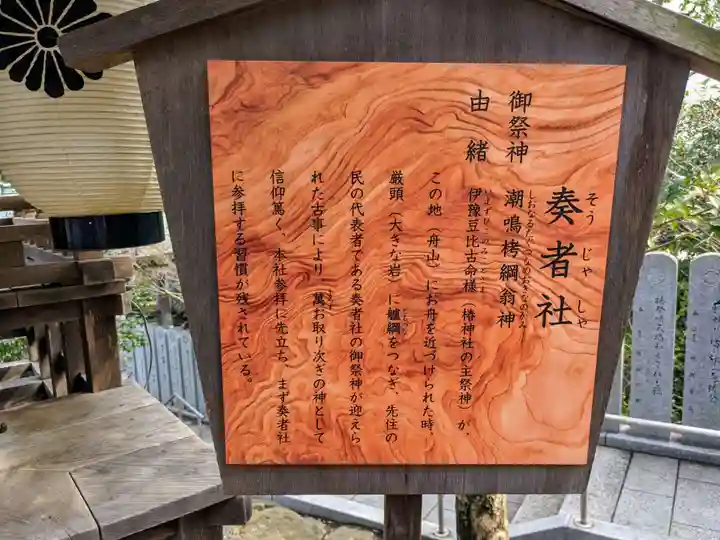 奏者社
そうじゃしゃ
御祭神 潮鳴栲綱翁神
由緒 伊豫豆比古命様（椿神社の主祭神）が、
この地（舟山）にお舟を近づけられた時、
厳頭（大きな岩）に艫綱をつなぎ、先住の
民の代表者である奏者社の御祭神が迎えら
れた古事により、萬お取り次ぎの神として
信仰篤く、本社参拝に先立ち、まず奏者社
に参拝する習慣が残されている。